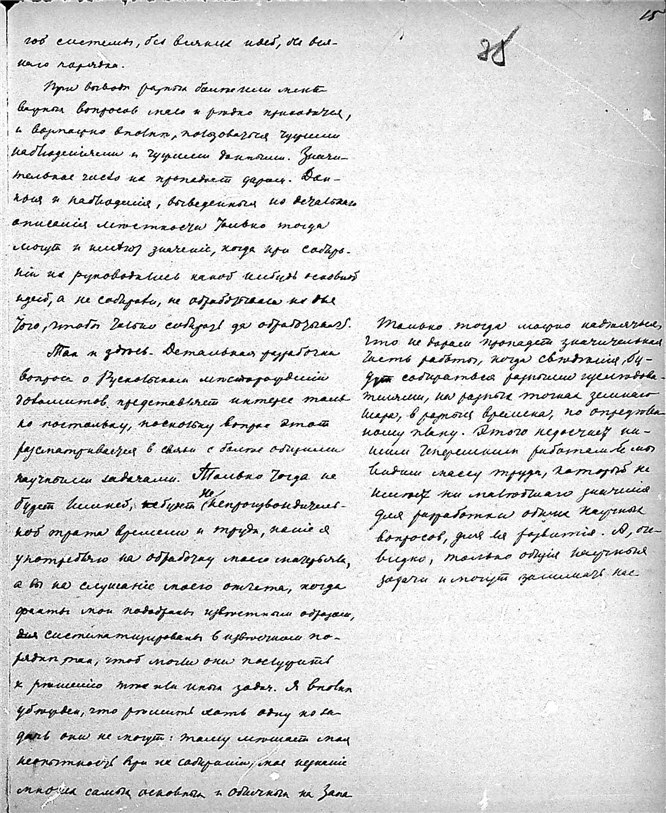 15
38
гой системы, без всяких идей, без вся-
кого порядка.
При выводе разных более или менее
важных вопросов мало и редко приходится,
и возможно вполне, пользоваться чужими
наблюдениями и чужими данными. Значи-
тельное число их пропадает даром. Дан-
ныя и наблюдения, выведенныя из детальнаго
описания местности только тогда
могут и имеют значение, когда при собира-
нии их руководились какой нибудь основной
идеей, а не собирали, не обрабатывали их для
того, чтобы только собирать да обрабатывать.
Так и здесь. Детальная разработка
вопроса о месторождении
доломитов представляет интерес толь-
ко постольку, поскольку вопрос этот
рассматривается в связи с более общими
научными задачами. Только тогда не
будет непроизводитель-
ной трата времени и труда, какие я
употребляю на обработку моего материала,
а вы на слушание моего отчета, когда
факты мои подобраны известным образом,
систематизированы в известном по-
рядке так, чтоб могли они послужить
к решению тех или иных задач. Я вполне
убежден, что решить хоть одну из за-
дач они не могут: тому мешает моя
неопытность при их собирании, мое незнание
многих самых основных и обычных на Запа
Только тогда можно надеяться,
что не даром пропадет значительная
часть работы, когда сведения бу-
дут собираться разными исследова-
телями, на разных точках земного
шара, в разныя времена, по определен-
ному плану. Этого недостает
нынешним работам и мы
видим массу труда, который не
имеет ни малейшаго значения
для разработки общих научных
вопросов, для их развития. А, оче-
видно, только общия научныя
задачи и могут занимать нас